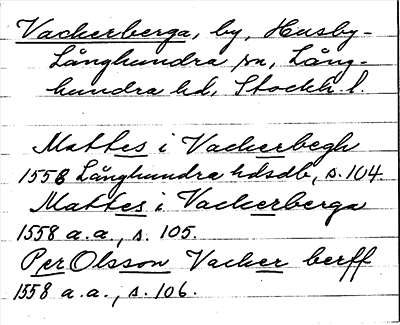 Vackerberga, by, Husby-
Långhundra sn, Lång-
hundra hd, Stockh. l.
Mattes i Vackerbegh
1558 Långhundra hdsdb, s. 104.
Mattes i Vackerberga
1558 a.a., s. 105.
Per Olsson Vacker berff
1558 a.a., s. 106.